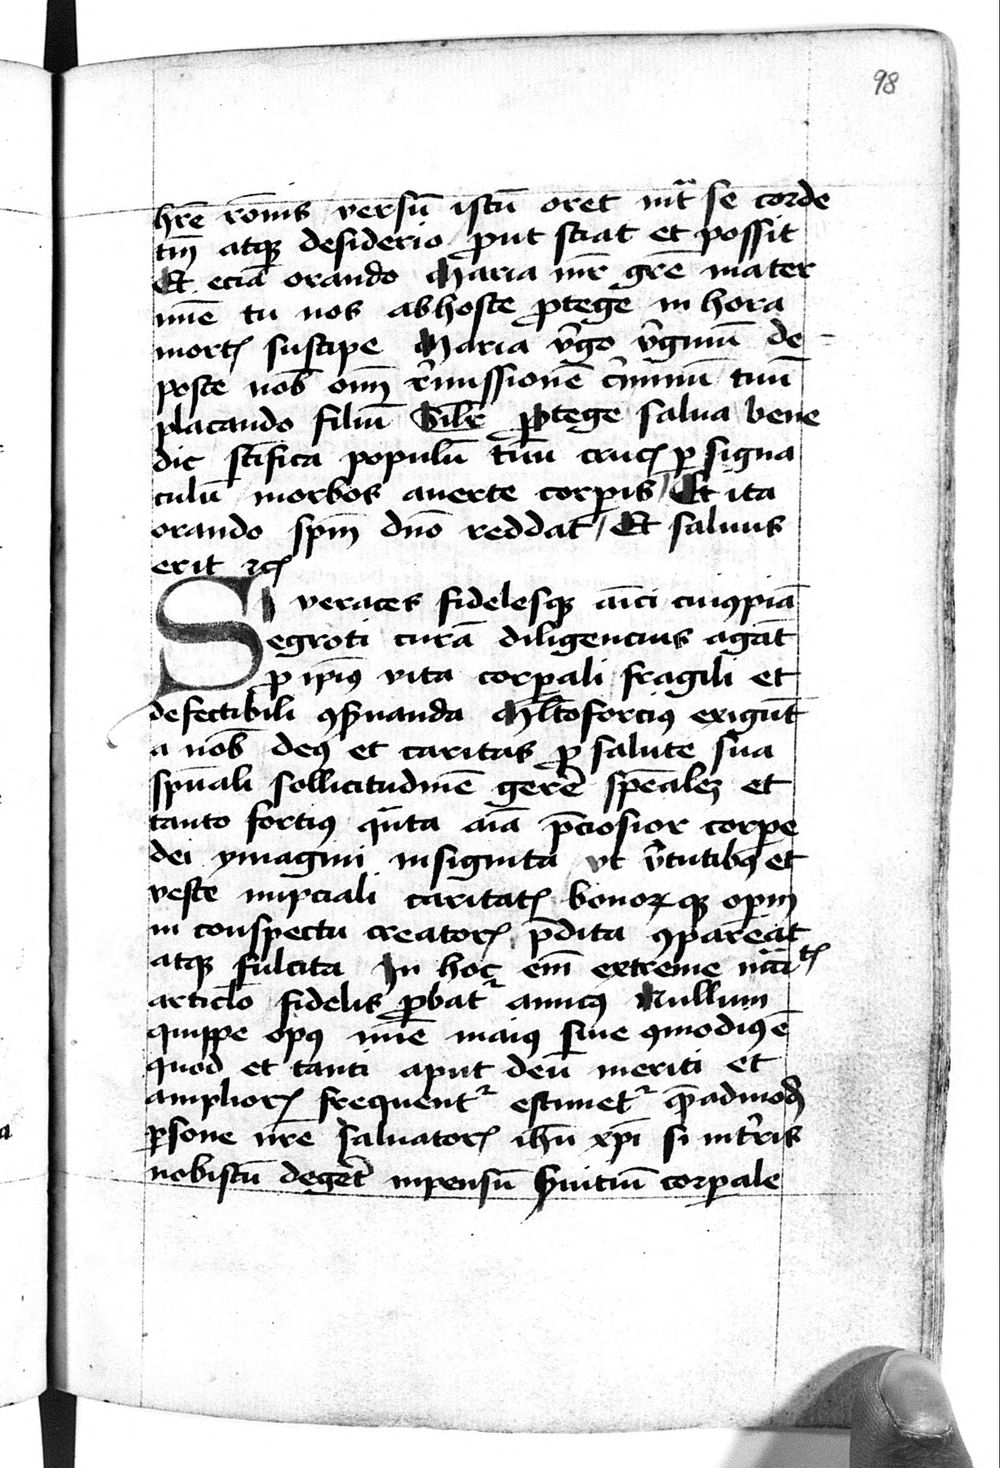 98
hr̄e rōnis versū istū oret int̄ se corde
tm̄ atqꝫ desiderio ꝓut sciat et possit
Et eciā orando Maria mr̄ gr̄e mater
mīe tu nos ab hoste ꝓtege in hora
mortꝭ suscipe Maria v̄go v̄ginū de-
posce nob̄ om̄ r̄missionē c̄minū tuū
placando filiū Silr̄ ꝓtege salua bene
dic sc̄ifica populū tuū crucꝭ ꝑ signa
culū morbos auerte corꝑis / Et ita
orando spm̄ dn̄o reddat / Et saluus
erit ⁊cꝭ
SI veraces fidelesqꝫ amīci cuiꝰpiā
egroti curā diligencius agāt
ꝓ ip̄iꝰ vita corꝑali fragili et
defectibili ꝯẜuanda Ml̄toforciꝰ exigūt
a nob̄ deꝰ et caritas ꝓ salute sua
spūali sollicitudinē gerē sp̄ealeꝫ et
tanto fortiꝰ qn̄ta aīa p̄ciosior corpe
dei ymagini insignita vt v̄tutibꝰ et
veste nupciali caritatꝭ bonoꝝqꝫ oꝑm
in conspectu creatorꝭ p̄dita ꝯpareat
atqꝫ fulcita In hoc em̄ extreme nc̄citꝭ
articl̄o fidelis ꝓbatᷣ amicꝰ Nullum
quippe opꝰ mīe maiꝰ siue ꝯmodiꝰ ē
quod et tanti aput deū meriti et
ampliorꝭ frequentᷣ estimetᷣ qēadmoꝺ
ꝑsone nr̄e saluatorꝭ ih̄u xp̄i si int̄ris
nobiscū degēt inpensū ẜuitiū corꝑale